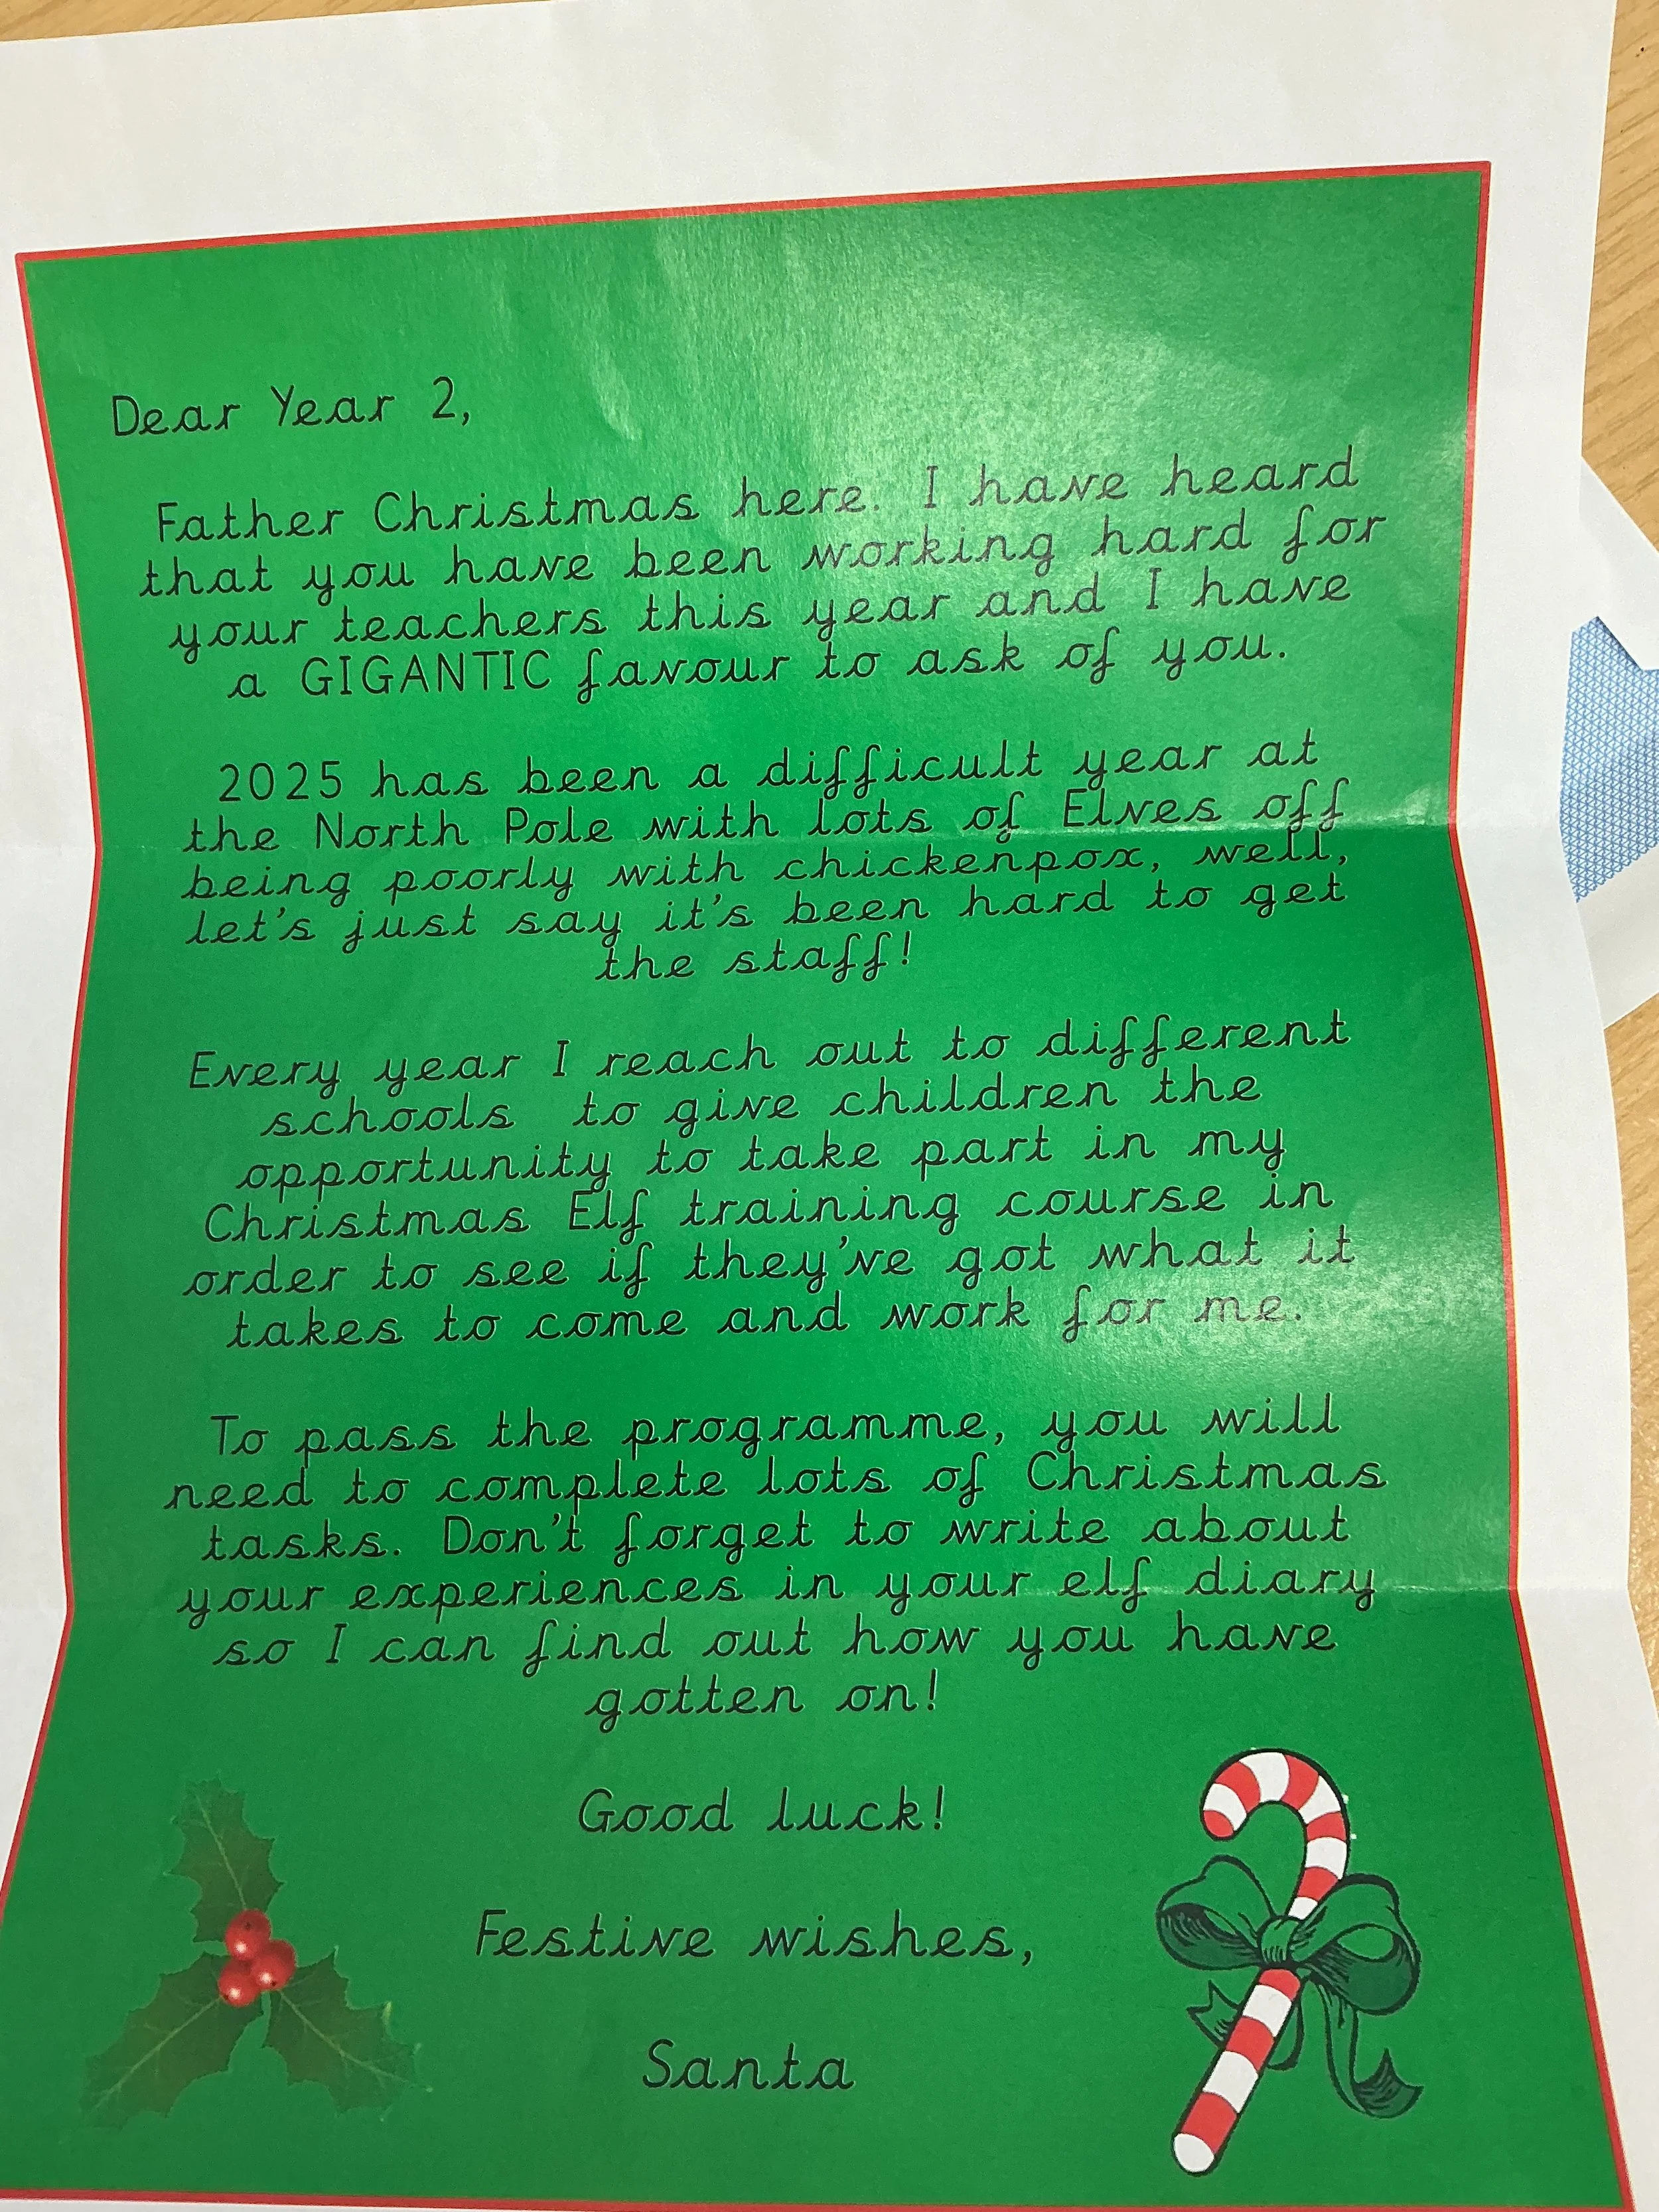 Dear Year 2,
Father Christmas here. I have heard
that you have been working hard for
your teachers this year and I have
a GIGANTIC favour to ask of you.
2025 has been a difficult year at
the North Pole with lots of Elves off
being poorly with chickenpox, well,
let's just say it's been hard to get
the staff!
Every year I reach out to different
schools to give children the
opportunity to take part in my
Christmas Elf training course in
order to see if they've got what it
takes to come and work for me.
To pass the programme, you will
need to complete lots of Christmas
tasks. Don't forget to write about
your experiences in your elf diary
so I can find out how you have
gotten on!
Good luck!
Festive wishes,
Santa